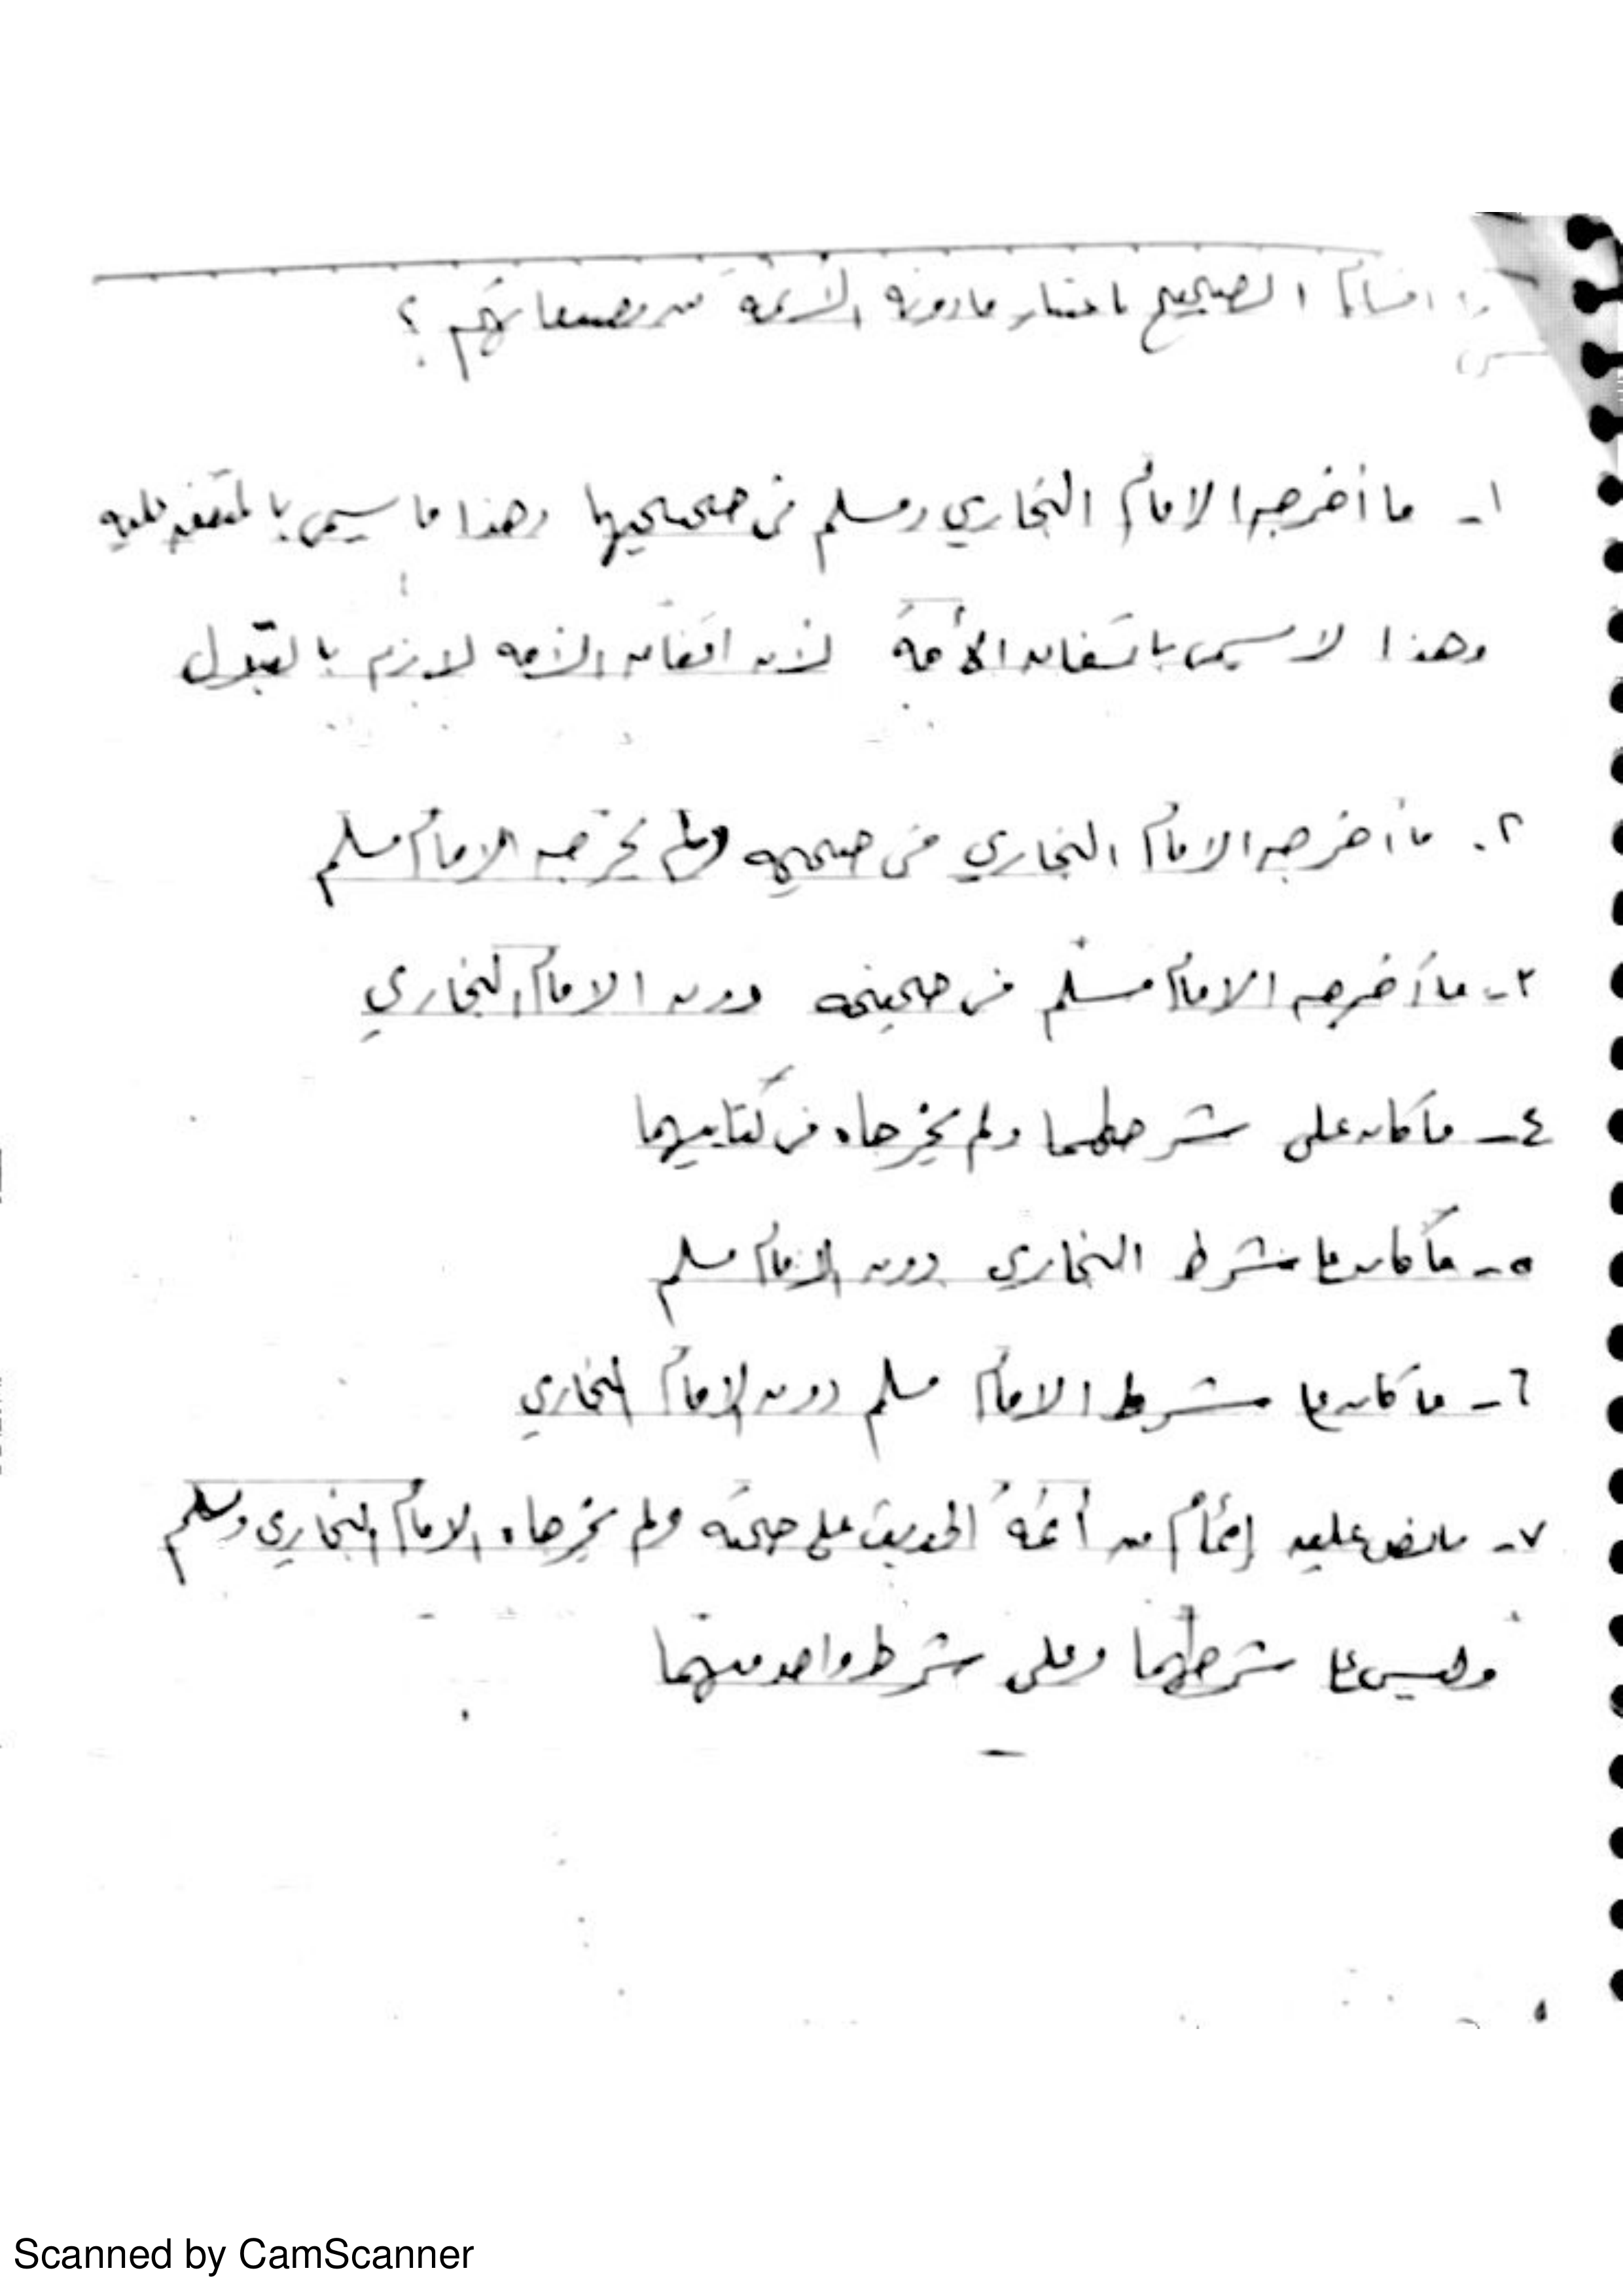 اقسام الصحيح باعتبار مادونه الأئمة من مصنفاتهم ؟
س
١- ما أخرجه الامام البخاري ومسلم في صحيحيهما وهذا ما يسمى بالمتفق عليه
وهذا لا يسمى باتفاق الأمة لأن اتفاق الأمه لازم بالقبول
٢- ما أخرجه الامام البخاري في صحيحه ولم يخرجه الامام مسلم
٣- ما أخرجه الامام مسلم في صحيحه دون الامام البخاري
٤- ما كان على شرطهما ولم يخرجاه في كتابيهما
٥- ما كان على شرط البخاري دون الامام مسلم
٦- ما كان على شرط الامام مسلم دون الامام البخاري
٧- ما نص عليه إمام من أئمة الحديث على صحته ولم يخرجاه الامام البخاري ومسلم
وليس على شرطهما وعلى شرط واحد منهما
Scanned by CamScanner